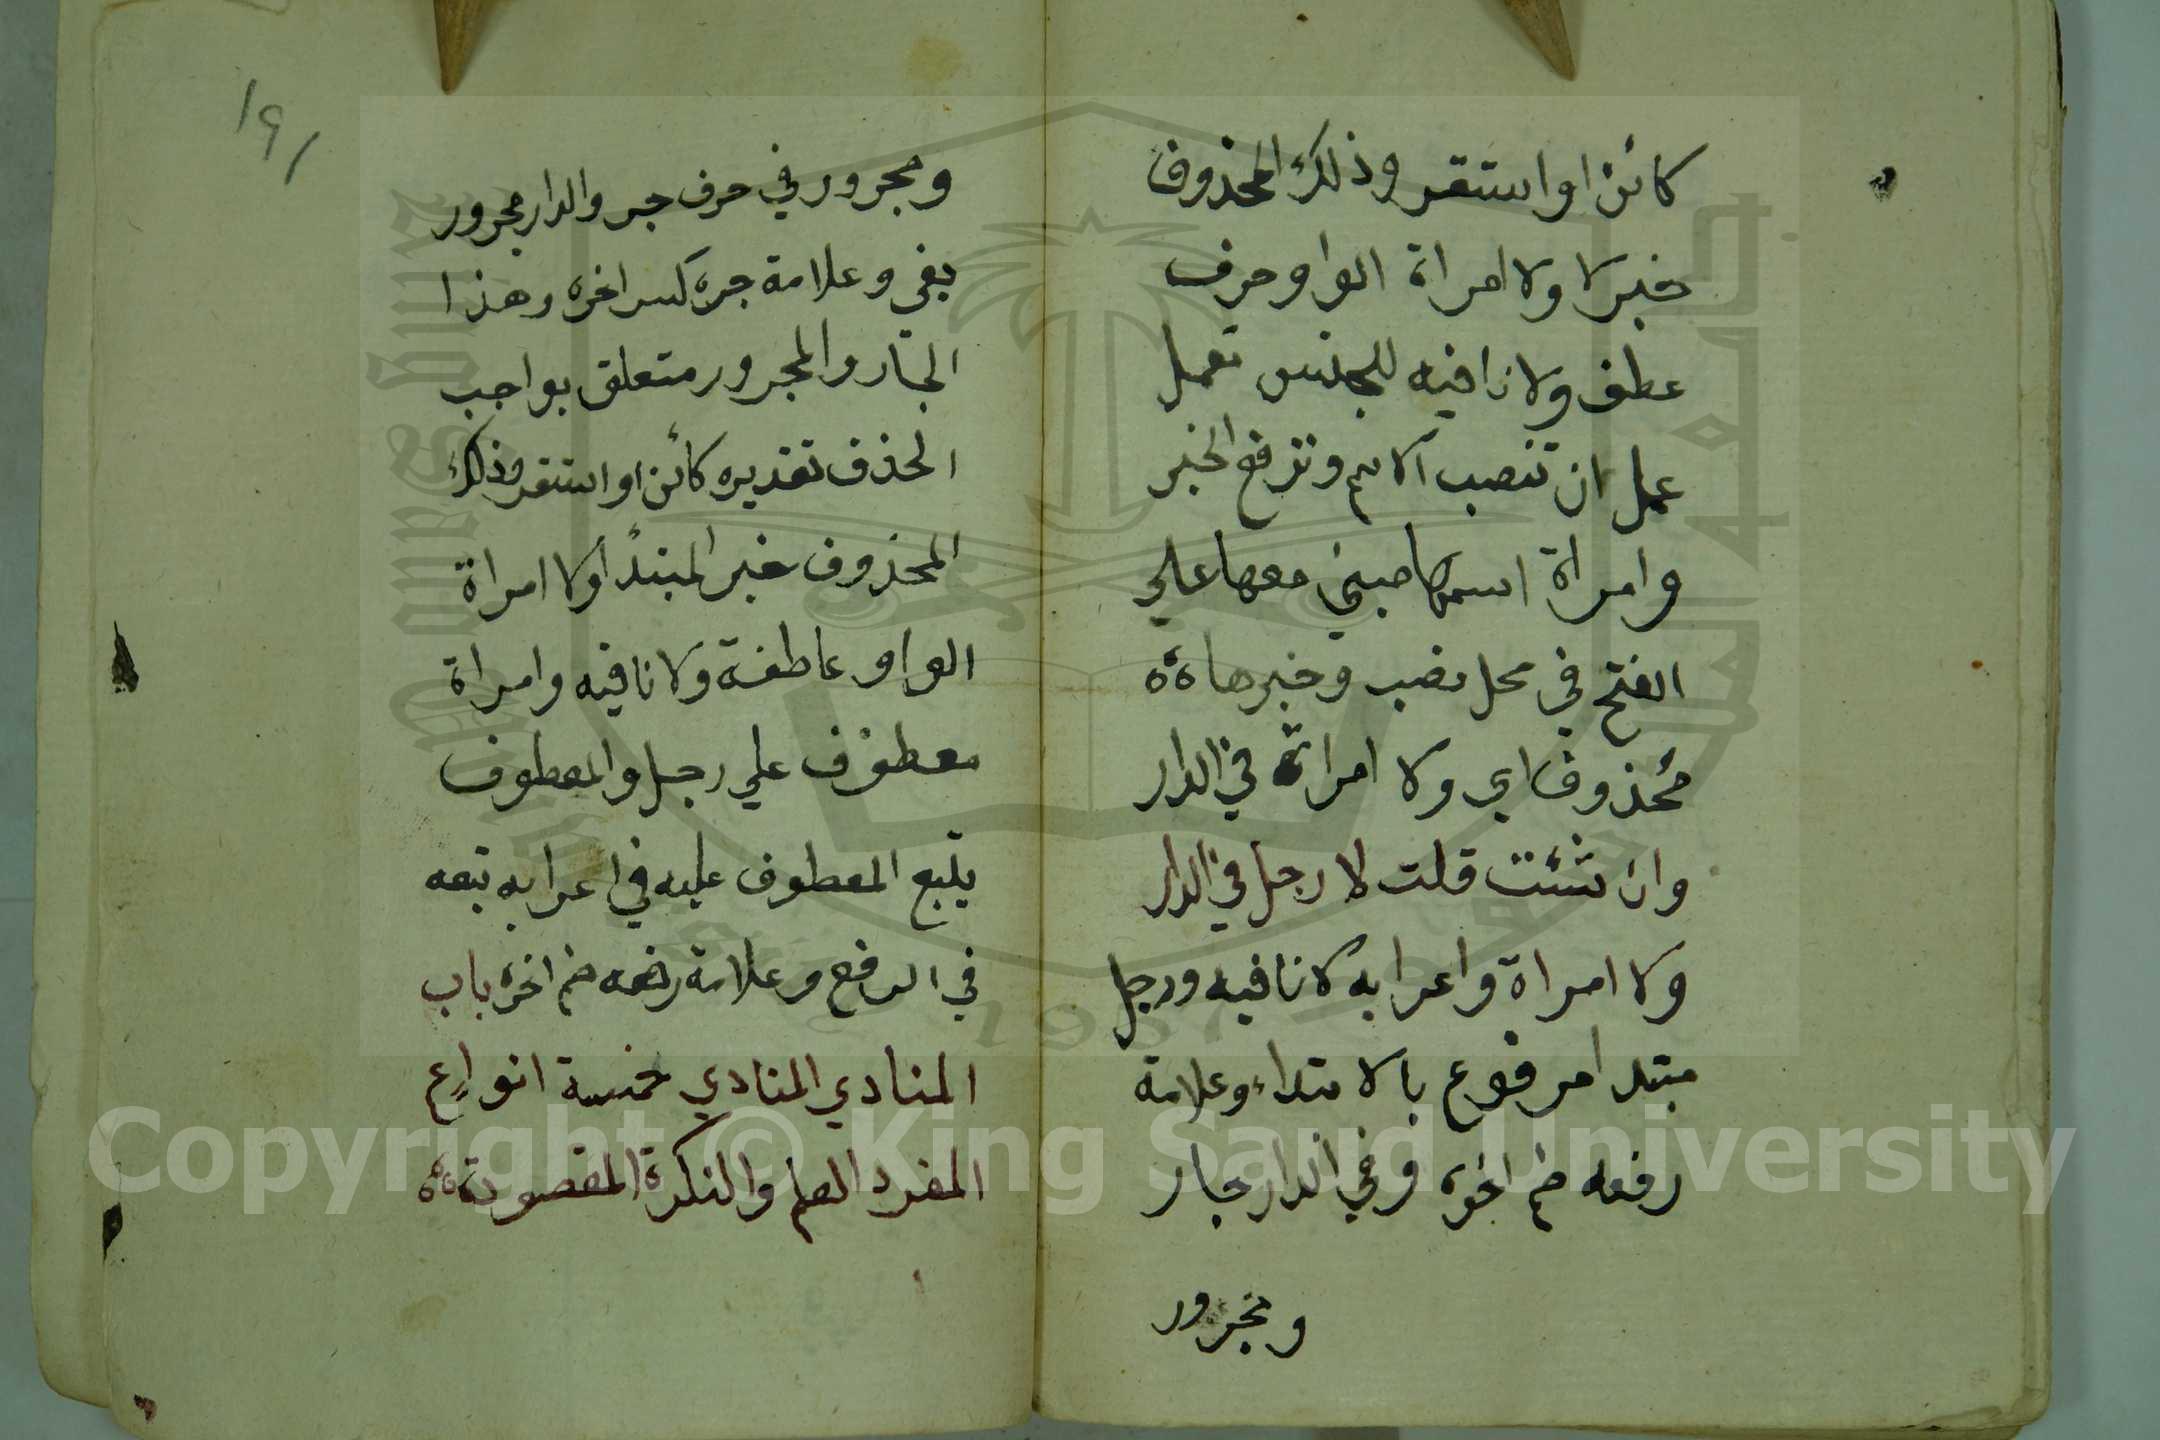 كائن او استقر وذلك المحذوف
خبر لا ولا امراة الواو حرف
عطف ولا نافيه للجنس تعمل
عمل ان تنصب الاسم وترفع الخبر
وامراة اسمها مبني معها علي
الفتح في محل نصب وخبرها
محذوف اي ولا امراة في الدار
وان شئت قلت لا رجل في الدار
ولا امراة واعرابه لا نافيه ورجل
مبتدا مرفوع بالابتداء وعلامة
رفعه ضم اخره وفي الدار جار
ومجرور
١٩١
ومجرور في حرف جر والدار مجرور
بفي وعلامة جره كسر اخره وهذا
الجار والمجرور متعلق بواجب
الحذف تقديره كائن او استقر وذلك
المحذوف خبر المبتدأ ولا امراة
الواو عاطفة ولا نافيه وامراة
معطوف علي رجل والمعطوف
يتبع المعطوف عليه في اعرابه تبعه
في الرفع وعلامة رفعه ضم اخره باب
المنادي المنادي خمسة انواع
المفرد العلم والنكرة المقصودة
Copyright © King Saud University
1957